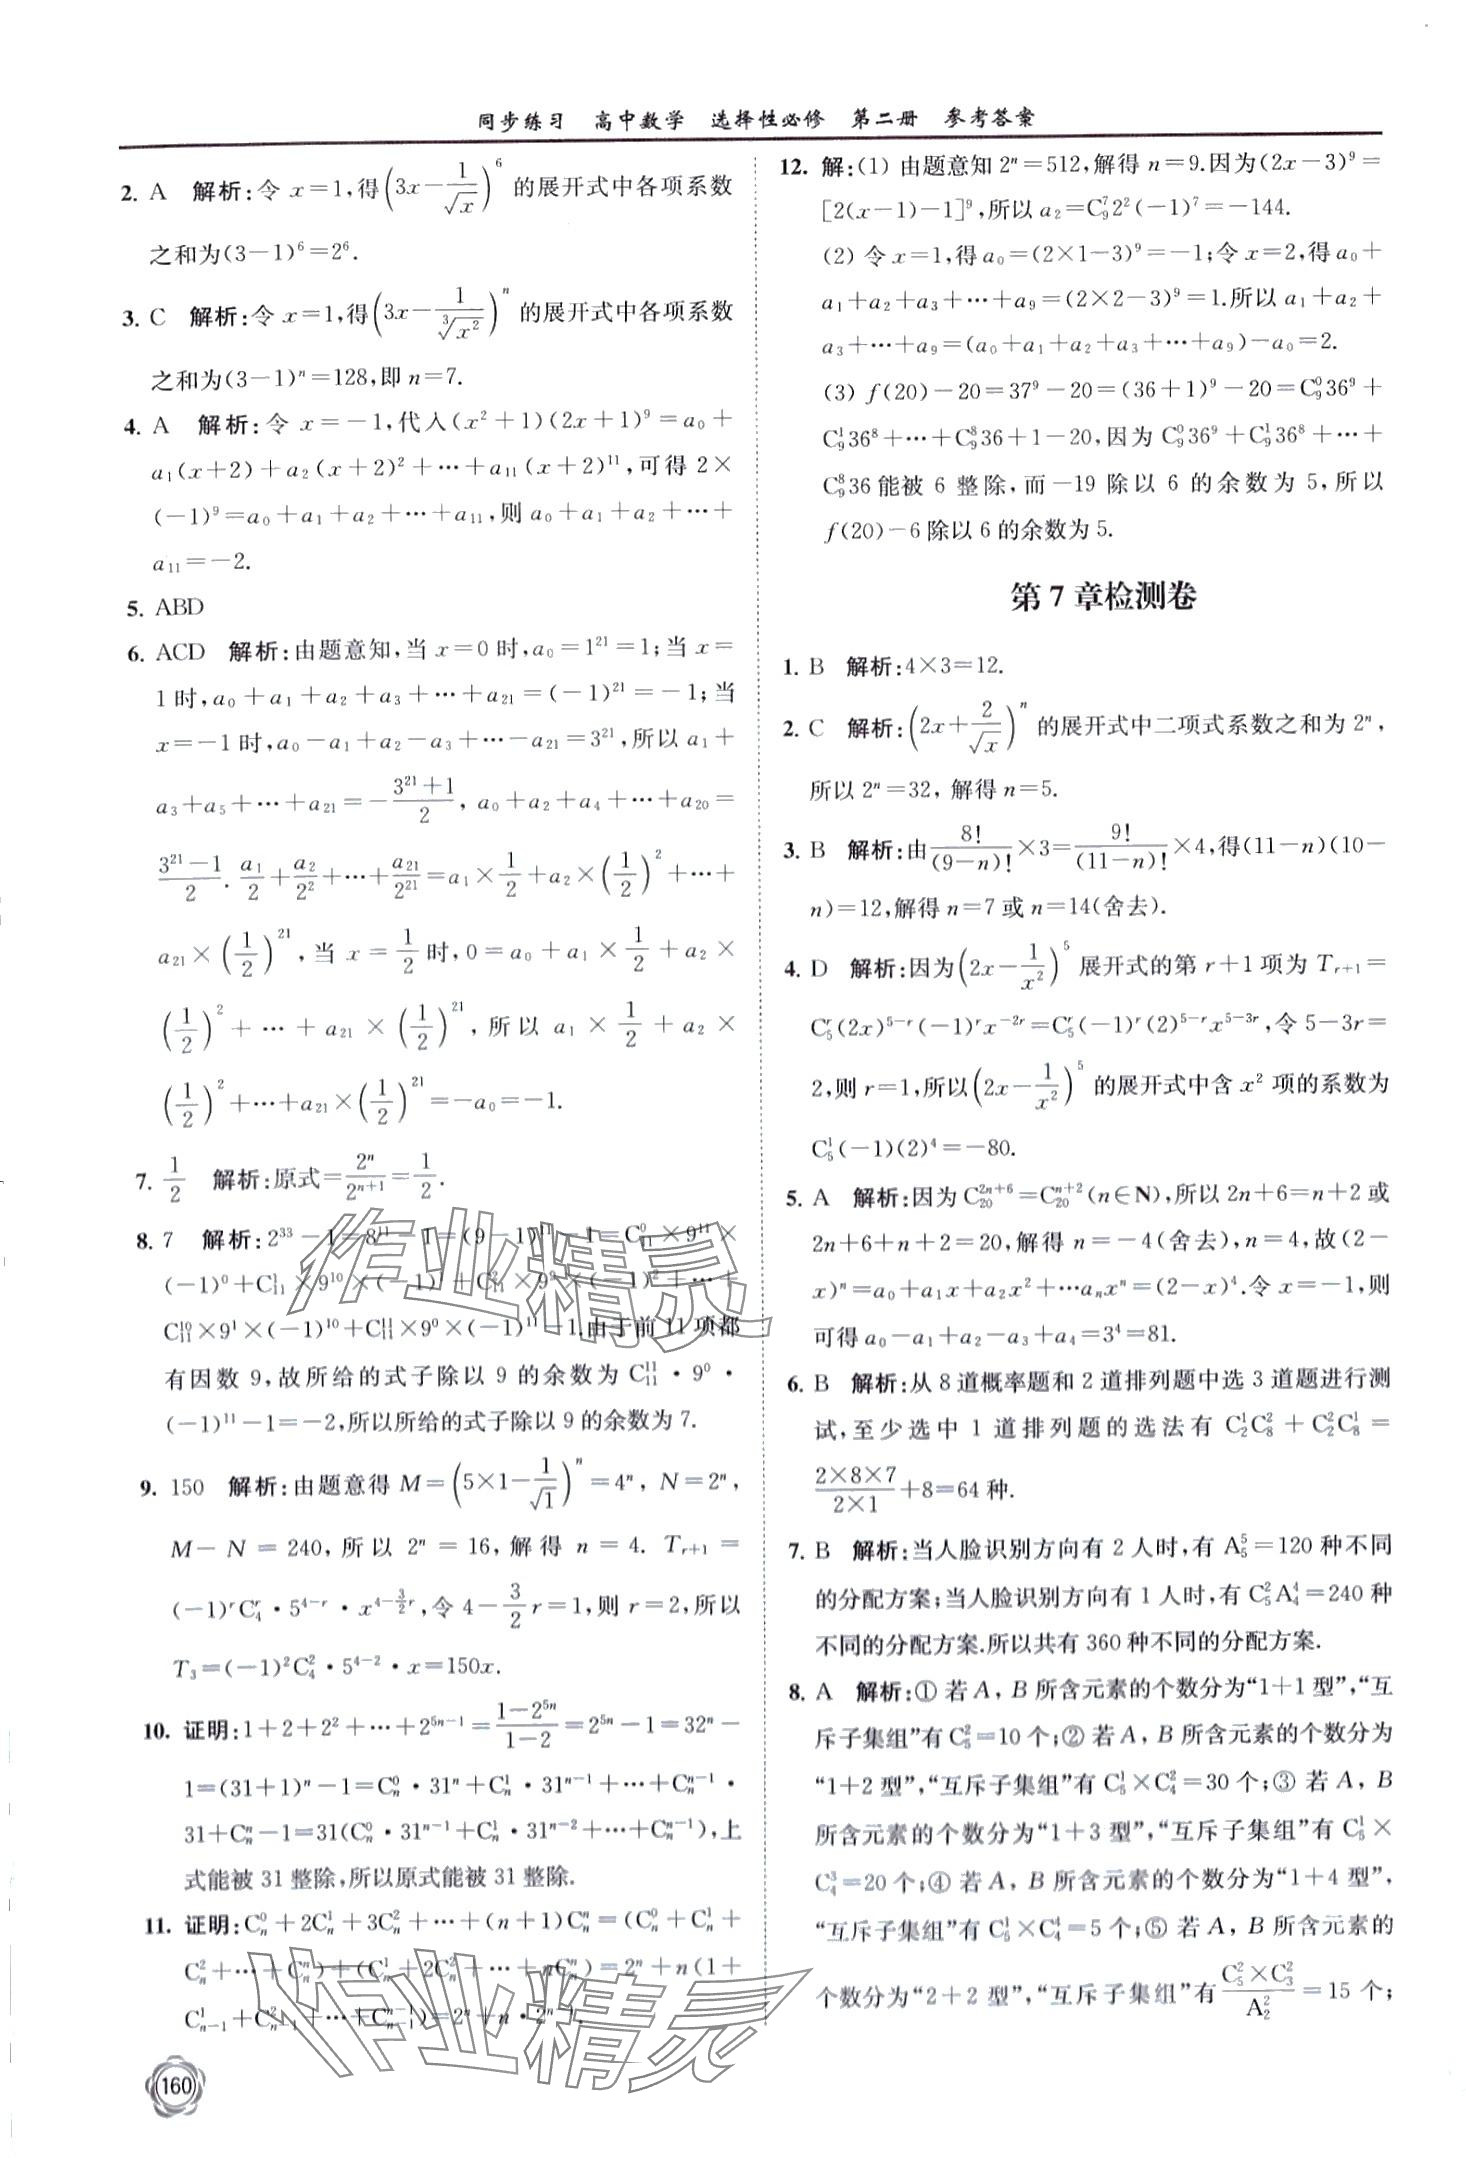 同步练习 高中数学 选择性必修 第二册 参考答案
2. A 解析:令 x=1,得(3x-1/√x)^6 的展开式中各项系数
之和为(3-1)^6=2^6.
3. C 解析:令 x=1,得(3x-1/∛(x^2))^n 的展开式中各项系数
之和为(3-1)^n=128,即 n=7.
4. A 解析:令 x=-1,代入(x^2+1)(2x+1)^9=a_0+
a_1(x+2)+a_2(x+2)^2+…+a_11(x+2)^11,可得 2×
(-1)^9=a_0+a_1+a_2+…+a_11,则 a_0+a_1+a_2+…+
a_11=-2.
5. ABD
6. ACD 解析:由题意知,当 x=0 时,a_0=1^21=1;当 x=
1 时,a_0+a_1+a_2+a_3+…+a_21=(-1)^21=-1;当
x=-1 时,a_0-a_1+a_2-a_3+…-a_21=3^21,所以 a_1+
a_3+a_5+…+a_21=-(3^21+1)/2, a_0+a_2+a_4+…+a_20=
(3^21-1)/2. a_1/2+a_2/2^2+…+a_21/2^21=a_1×1/2+a_2×(1/2)^2+…+
a_21×(1/2)^21,当 x=1/2 时,0=a_0+a_1×1/2+a_2×
(1/2)^2+…+a_21×(1/2)^21,所以 a_1×1/2+a_2×
(1/2)^2+…+a_21×(1/2)^21=-a_0=-1.
7. 1/2 解析:原式=2^n/2^(n+1)=1/2.
8. 7 解析:2^33-1=8^11-1=(9-1)^11-1=C_11^0×9^11×
(-1)^0+C_11^1×9^10×(-1)^1+C_11^2×9^9×(-1)^2+…+
C_11^10×9^1×(-1)^10+C_11^11×9^0×(-1)^11-1.由于前 11 项都
有因数 9,故所给的式子除以 9 的余数为 C_11^11·9^0·
(-1)^11-1=-2,所以所给的式子除以 9 的余数为 7.
9. 150 解析:由题意得 M=(5×1-1/√1)^n=4^n, N=2^n,
M-N=240,所以 2^n=16,解得 n=4. T_(r+1)=
(-1)^r C_4^r·5^(4-r)·x^(4-3/2 r),令 4-3/2 r=1,则 r=2,所以
T_3=(-1)^2 C_4^2·5^(4-2)·x=150x.
10. 证明:1+2+2^2+…+2^(5n-1)=(1-2^(5n))/(1-2)=2^(5n)-1=32^n-
1=(31+1)^n-1=C_n^0·31^n+C_n^1·31^(n-1)+…+C_n^(n-1)·
31+C_n^n-1=31(C_n^0·31^(n-1)+C_n^1·31^(n-2)+…+C_n^(n-1)),上
式能被 31 整除,所以原式能被 31 整除.
11. 证明:C_n^0+2C_n^1+3C_n^2+…+(n+1)C_n^n=(C_n^0+C_n^1+
C_n^2+…+C_n^n)+(C_n^1+2C_n^2+…+nC_n^n)=2^n+n(1+
C_(n-1)^1+C_(n-1)^2+…+C_(n-1)^(n-1))=2^n+n·2^(n-1).
160
12. 解:(1) 由题意知 2^n=512,解得 n=9.因为(2x-3)^9=
[2(x-1)-1]^9,所以 a_2=C_9^7 2^2(-1)^7=-144.
(2) 令 x=1,得 a_0=(2×1-3)^9=-1;令 x=2,得 a_0+
a_1+a_2+a_3+…+a_9=(2×2-3)^9=1.所以 a_1+a_2+
a_3+…+a_9=(a_0+a_1+a_2+a_3+…+a_9)-a_0=2.
(3) f(20)-20=37^9-20=(36+1)^9-20=C_9^0 36^9+
C_9^1 36^8+…+C_9^8 36+1-20,因为 C_9^0 36^9+C_9^1 36^8+…+
C_9^8 36能被 6 整除,而-19 除以 6 的余数为 5,所以
f(20)-6除以 6 的余数为 5.
第 7 章检测卷
1. B 解析:4×3=12.
2. C 解析:(2x+2/√x)^n 的展开式中二项式系数之和为 2^n,
所以 2^n=32, 解得 n=5.
3. B 解析:由8!/(9-n)!×3=9!/(11-n)!×4,得(11-n)(10-
n)=12,解得 n=7 或 n=14(舍去).
4. D 解析:因为(2x-1/x^2)^5 展开式的第 r+1 项为 T_(r+1)=
C_5^r(2x)^(5-r)(-1)^r x^(-2r)=C_5^r(-1)^r(2)^(5-r) x^(5-3r),令 5-3r=
2,则 r=1,所以(2x-1/x^2)^5 的展开式中含 x^2 项的系数为
C_5^1(-1)(2)^4=-80.
5. A 解析:因为 C_20^(2n+6)=C_20^(n+2)(n∈N),所以 2n+6=n+2 或
2n+6+n+2=20,解得 n=-4(舍去),n=4,故(2-
x)^n=a_0+a_1x+a_2x^2+…a_nx^n=(2-x)^4.令 x=-1,则
可得 a_0-a_1+a_2-a_3+a_4=3^4=81.
6. B 解析:从 8 道概率题和 2 道排列题中选 3 道题进行测
试,至少选中 1 道排列题的选法有 C_2^1C_8^2+C_2^2C_8^1=
(2×8×7)/(2×1)+8=64 种.
7. B 解析:当人脸识别方向有 2 人时,有 A_5^5=120 种不同
的分配方案;当人脸识别方向有 1 人时,有 C_5^2A_4^4=240 种
不同的分配方案.所以共有 360 种不同的分配方案.
8. A 解析:① 若 A, B 所含元素的个数分为“1+1 型”,“互
斥子集组”有 C_5^2=10 个;② 若 A, B 所含元素的个数分为
“1+2 型”,“互斥子集组”有 C_5^1×C_4^2=30 个;③ 若 A, B
所含元素的个数分为“1+3 型”,“互斥子集组”有 C_5^1×
C_4^3=20 个;④ 若 A, B 所含元素的个数分为“1+4 型”,
“互斥子集组”有 C_5^1×C_4^4=5 个;⑤ 若 A, B 所含元素的
个数分为“2+2 型”,“互斥子集组”有(C_5^2×C_3^2)/A_2^2=15 个;
作业精灵
作业精灵